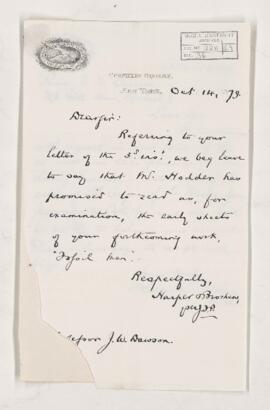 FRANKLIN SQUARE,
NEW YORK,
Oct 14, '79.
Dear Sir:
Referring to your
letter of the 3d inst., we beg leave
to say that Mr. Hodder has
promised to send us, for
examination, the early sheets
of your forthcoming work,
"Fossil Men".
Respectfully,
Harper & Brothers,
Professor J. W. Dawson.